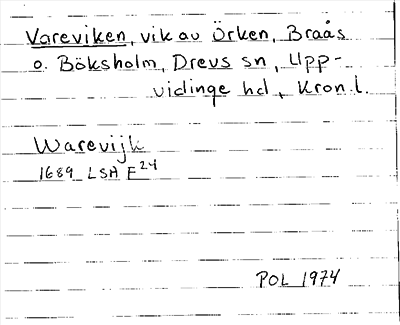 Vareviken, vik av Örken, Braås
o. Böksholm, Drevs sn, Upp-
vidinge hd, Kron.l.
Warevijk
1689 LSA F24
POL 1974